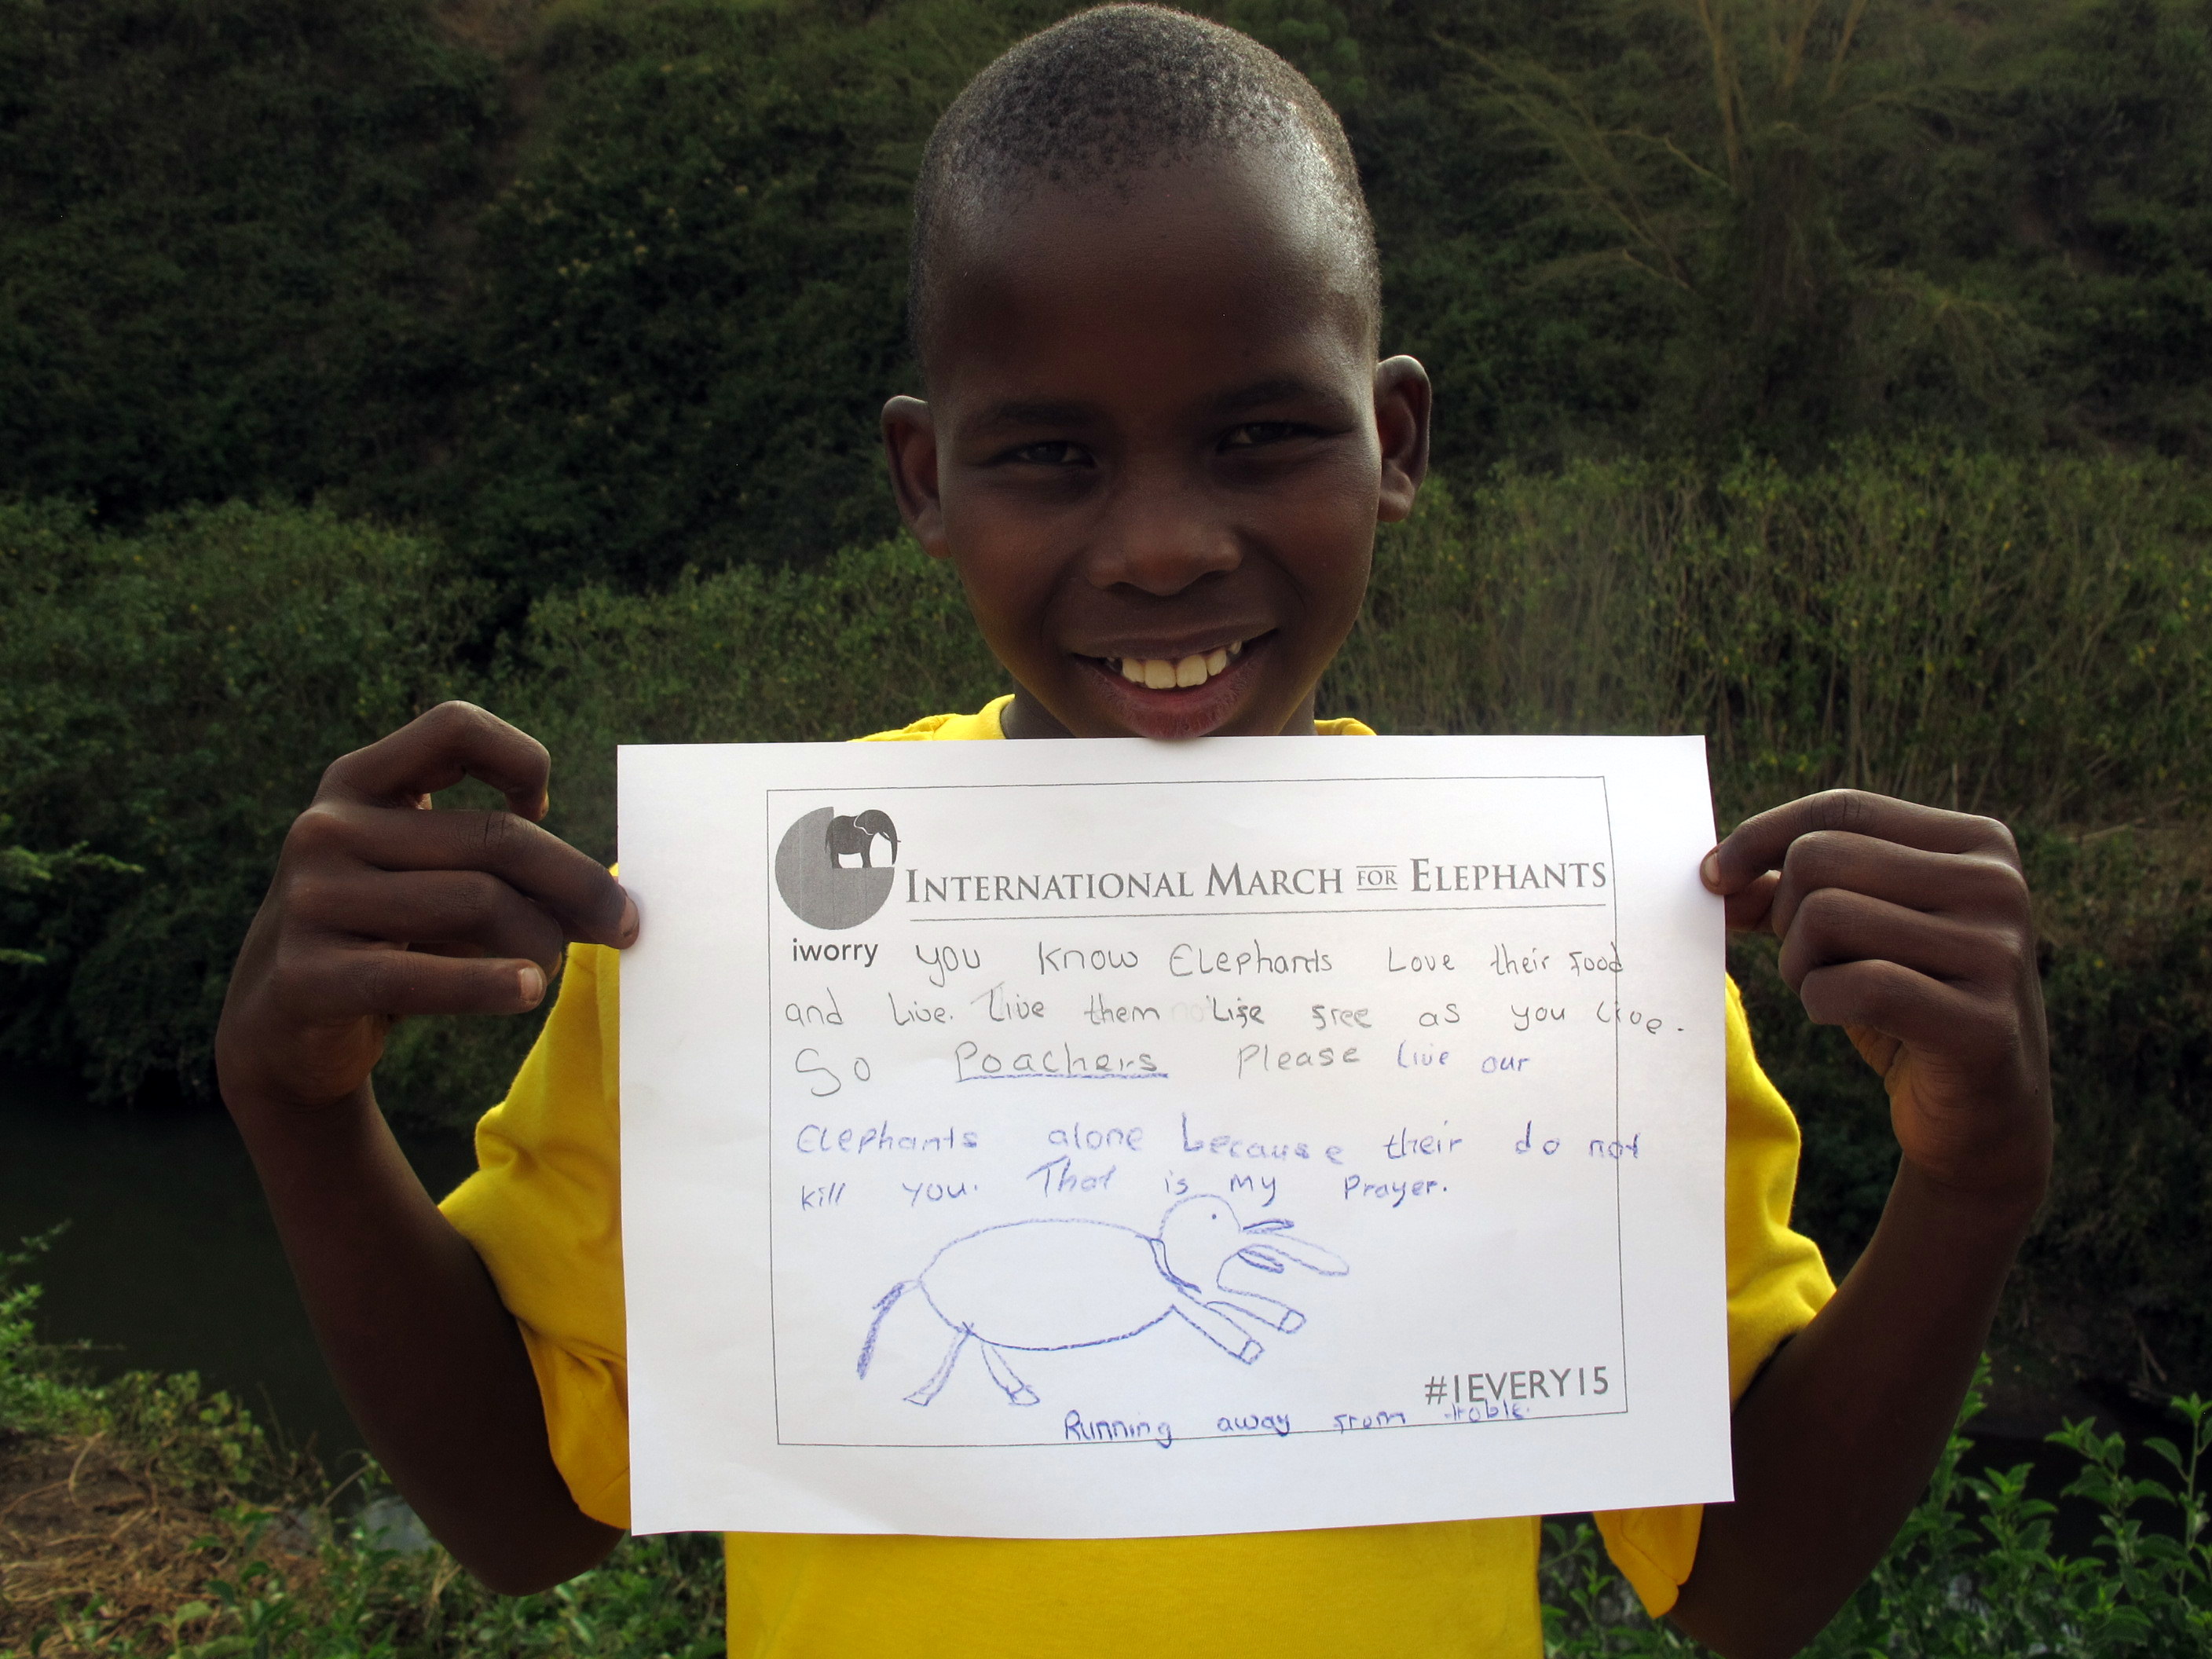 INTERNATIONAL MARCH FOR ELEPHANTS
iworry
you know Elephants Love their food
and Live. Live them Life free as you Live.
So Poachers Please Live our
Elephants alone because their do not
kill you. That is my Prayer.
#1EVERY15
Running away from troble.